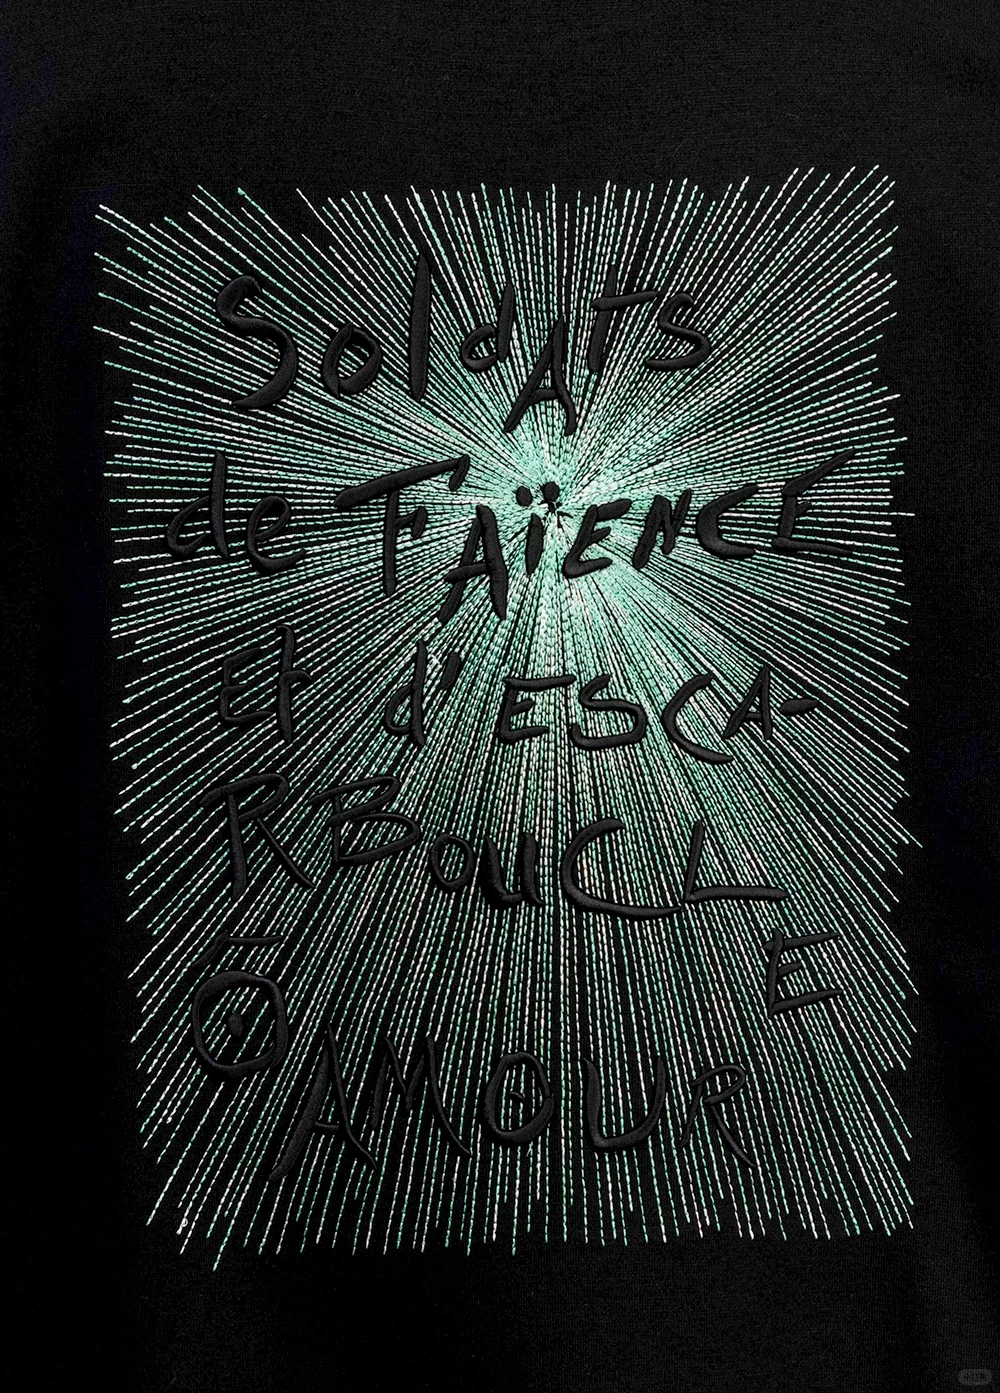 Soldats
de FAïENCE
Et d'ESCA-
RBouCLE
Ō AMOUR